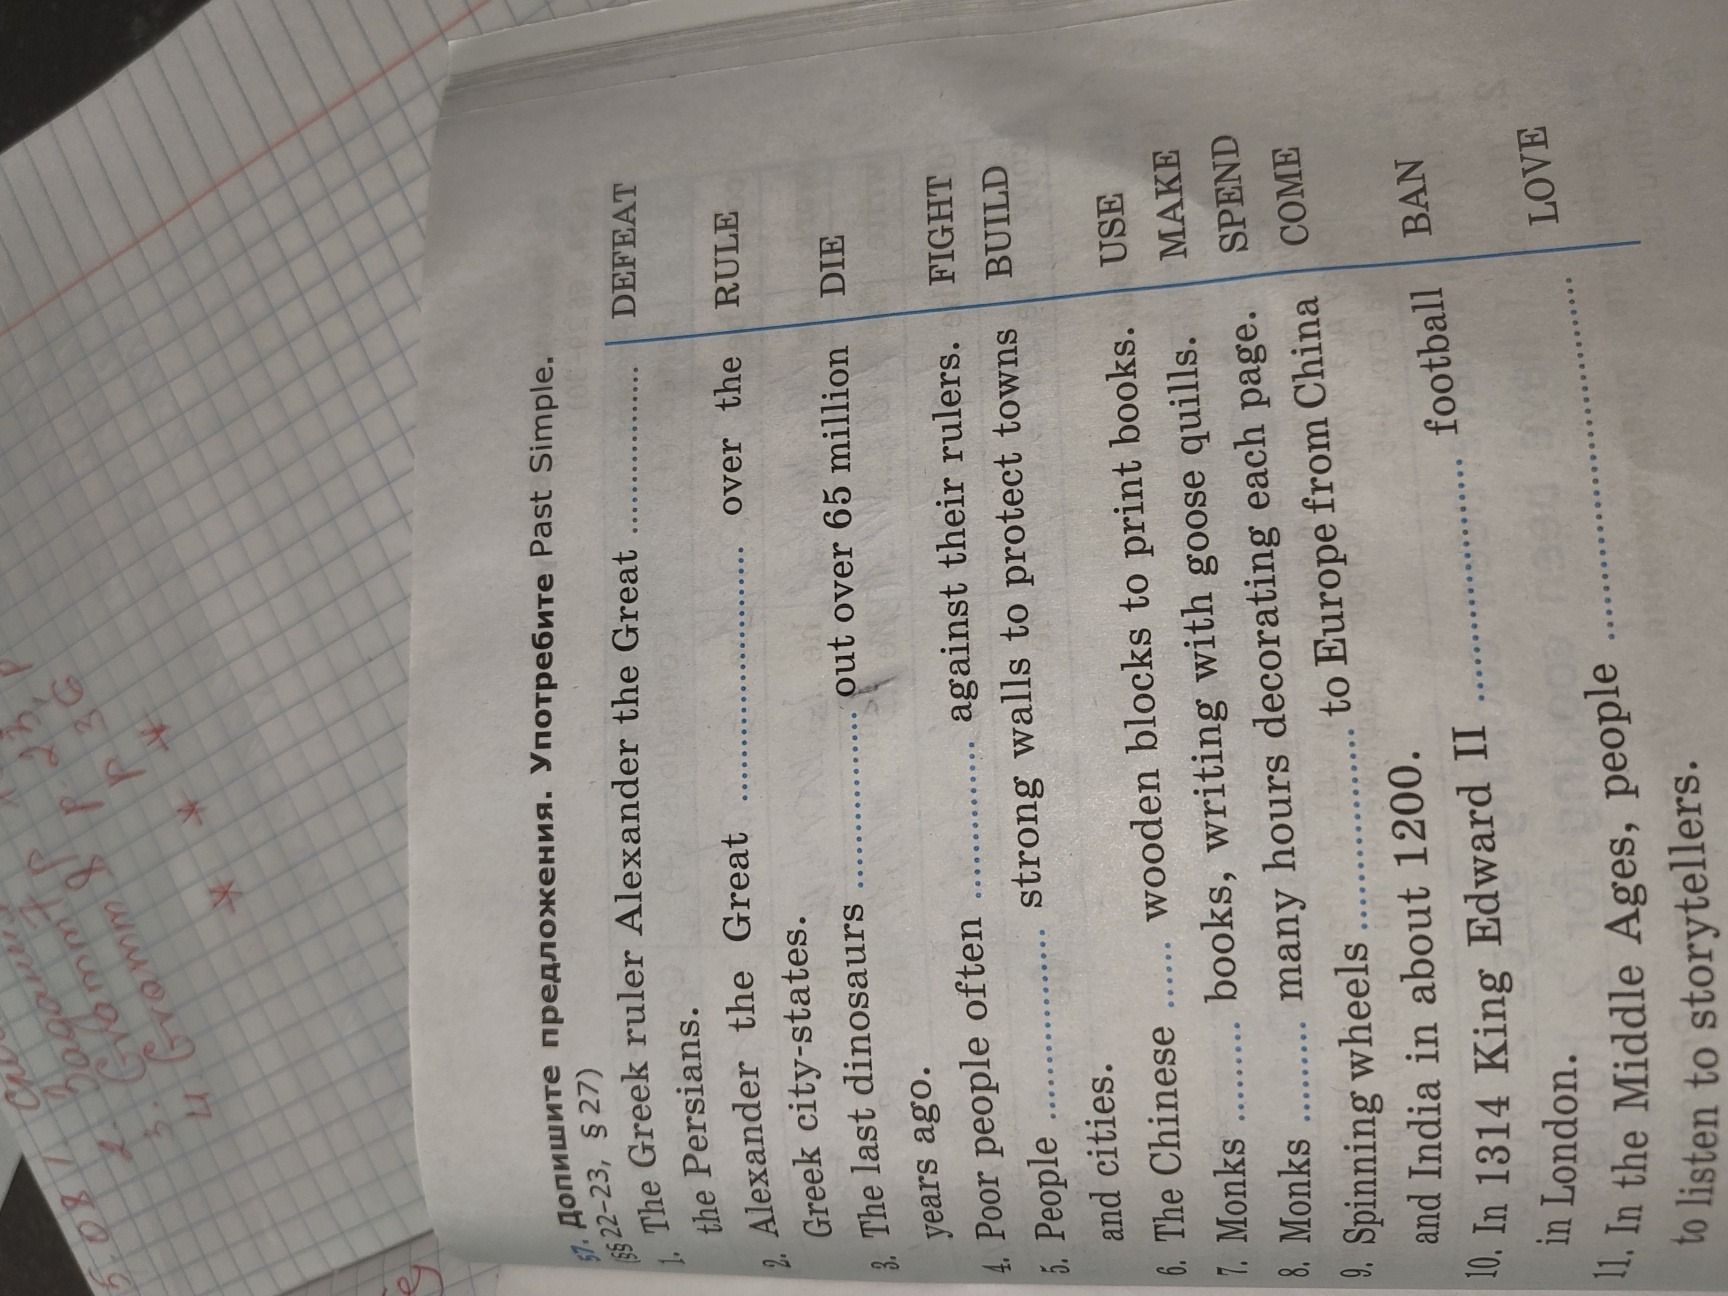 57. Допишите предложения. Употребите Past Simple.
(§§ 22–23, § 27)
1. The Greek ruler Alexander the Great ............... DEFEAT
the Persians.
2. Alexander the Great ....................... over the RULE
Greek city-states.
3. The last dinosaurs ................ out over 65 million DIE
years ago.
4. Poor people often ............... against their rulers. FIGHT
5. People .................. strong walls to protect towns BUILD
and cities.
6. The Chinese ...... wooden blocks to print books. USE
7. Monks ......... books, writing with goose quills. MAKE
8. Monks ......... many hours decorating each page. SPEND
9. Spinning wheels .................. to Europe from China COME
and India in about 1200.
10. In 1314 King Edward II ...................... football BAN
in London.
11. In the Middle Ages, people ................................. LOVE
to listen to storytellers.